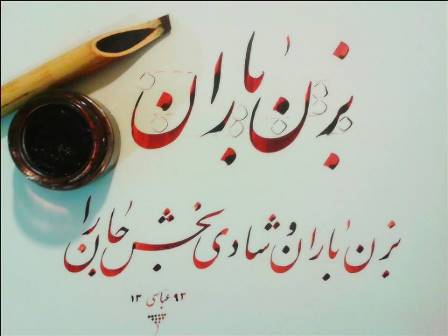 بزن باران
بزن باران و شادی بخش جان را
۹۲ عباسی ۱۳